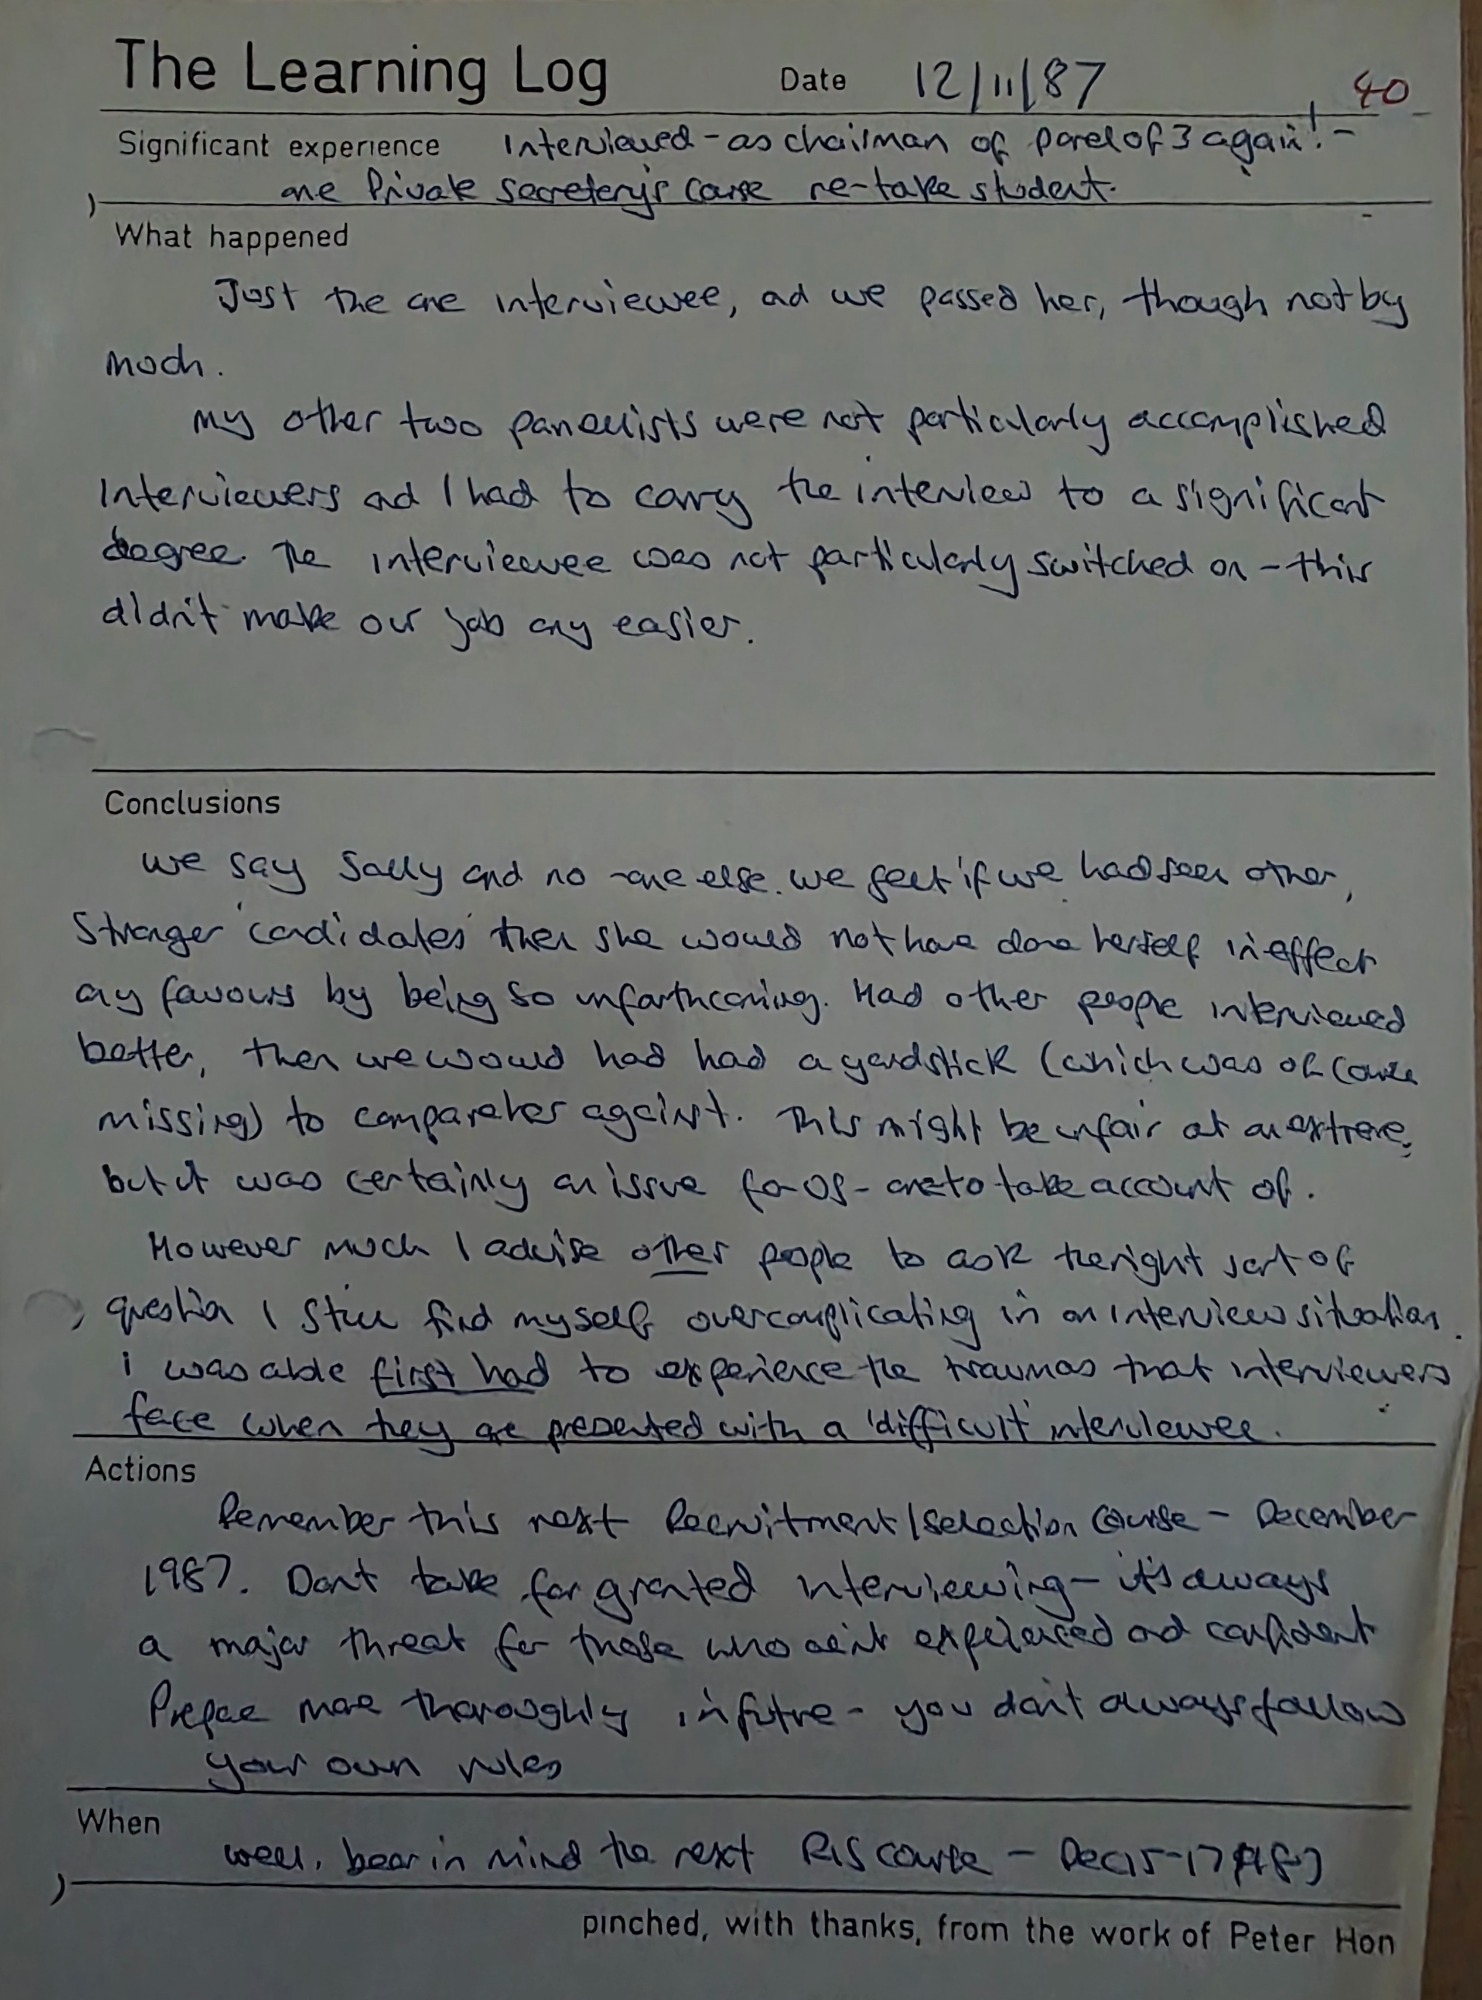 The Learning Log Date 12/11/87 40
Significant experience Interviewed - as chairman of panel of 3 again! -
one Private Secretary's Course re-take student.
What happened
Just the one interviewee, and we passed her, though not by
much.
My other two panellists were not particularly accomplished
interviewers and I had to carry the interview to a significant
degree. The interviewee was not particularly switched on - this
didn't make our job any easier.
Conclusions
We say Sally and no-one else. We felt if we had seen other,
stronger 'candidates' then she would not have done herself in effect
any favours by being so unforthcoming. Had other people interviewed
better, then we would had had a yardstick (which was of course
missing) to compare her against. This might be unfair at an extreme,
but it was certainly an issue for us - one to take account of.
However much I advise other people to ask the right sort of
question I still find myself overcomplicating in an interview situation.
I was able first hand to experience the traumas that interviewers
face when they are presented with a 'difficult' interviewee.
Actions
Remember this next Recruitment/Selection Course - December
1987. Don't take for granted interviewing - it's always
a major threat for those who ain't experienced and confident
Prepare more thoroughly in future - you don't always follow
your own rules
When
Well, bear in mind the next R/S course - Dec 15-17
pinched, with thanks, from the work of Peter Hon